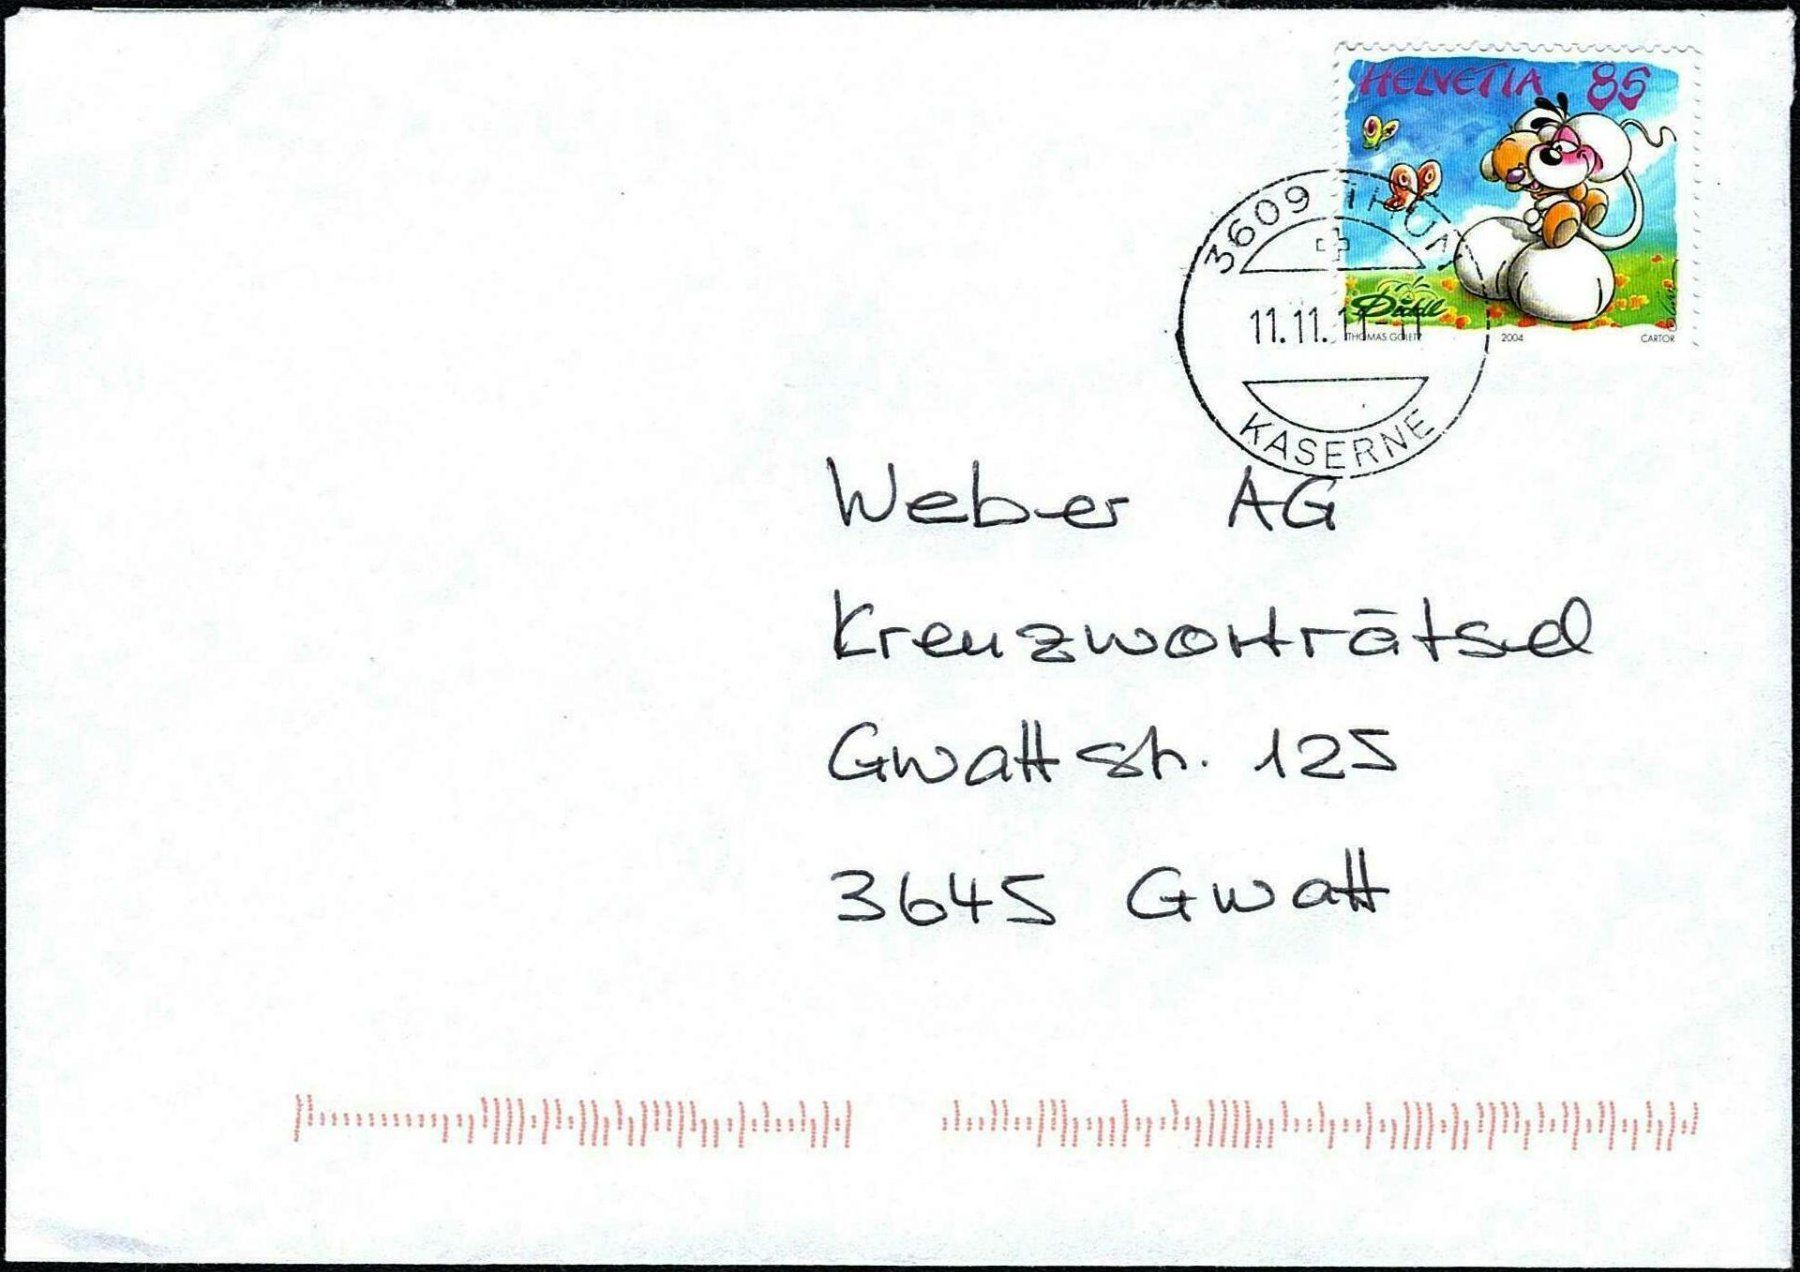 HELVETIA 85
Diddl
THOMAS GOLETZ 2004 CARTOR
3609 THUN
11.11.11-11
KASERNE
Weber AG
Kreuzworträtsel
Gwattstr. 125
3645 Gwatt